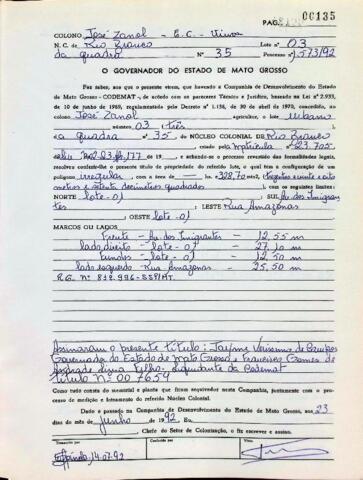 PAG. 00135
COLONO José Zanol - E.C. - Viuva
N. C. de Rio Branco Lote n° 03
da quadra N° 35 Processo n° 1.573/92
O GOVERNADOR DO ESTADO DE MATO GROSSO
Faz saber, aos que a presente virem, que havendo a Companhia de Desenvolvimento do Estado
de Mato Grosso - CODEMAT -, de acordo com os pareceres Técnico e Jurídico, baseado na Lei n° 2.933,
de 10 de junho de 1969, regulamentada pelo Decreto n° 1.138, de 30 de abril de 1970, concedido, ao
colono José Zanol agricultor, o lote urbano
número 03 / três
da quadra n° 35 do NÚCLEO COLONIAL DE Rio Branco
criado pela matricula n° 23.705
de 19 e achando-se o processo revestido das formalidades legais,
resolveu conferir-lhe o presente título de propriedade do referido lote, o qual tem a configuração de um
polígono irregular, com a área de — 328,70 mts2, (trezentos e vinte e oito
metros e setenta decimetros quadrados), com os seguintes limites:
NORTE lote-01 SUL Av. dos Imigran
tes; LESTE Rua Amazonas
; OESTE lote-01
MARCOS OU LADOS
Frente - Av. dos Imigrantes - 12,55 m
lado direito - lote-01 - 27,10 m
fundos - lote-01 - 12,50 m
lado esquerdo - Rua Amazonas - 25,50 m
R.G. N° 818.996-SSP/MT.
Assinaram o presente título: Jayme Verissimo de Campos
Governador do Estado de Mato Grosso e Francisco Gomes de
Andrade Lima Filho - Liquidante da Codemat
Título N° 007659
Como tudo consta do memorial e planta que ficam arquivados nesta Companhia, juntamente com o pro-
cesso de medição e loteamento do referido Núcleo Colonial.
Dado e passado na Companhia de Desenvolvimento do Estado de Mato Grosso, aos 23
dias do mês de Junho de 1992 Eu
Chefe do Setor de Colonização, o fiz escrever e assino.
Transcrito por Conferido por Visto
14.07.92